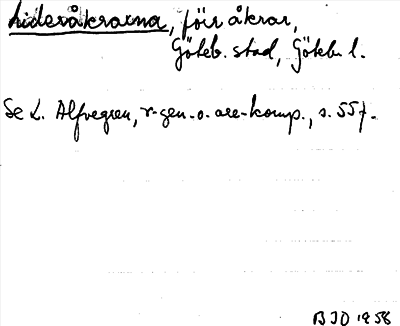 Lideråkrarna, förr åkrar,
Göteb. stad, Göteb. l.
Se L. Alfvegren, r-gen. o. are-komp., s. 55 f.
BJO 1958